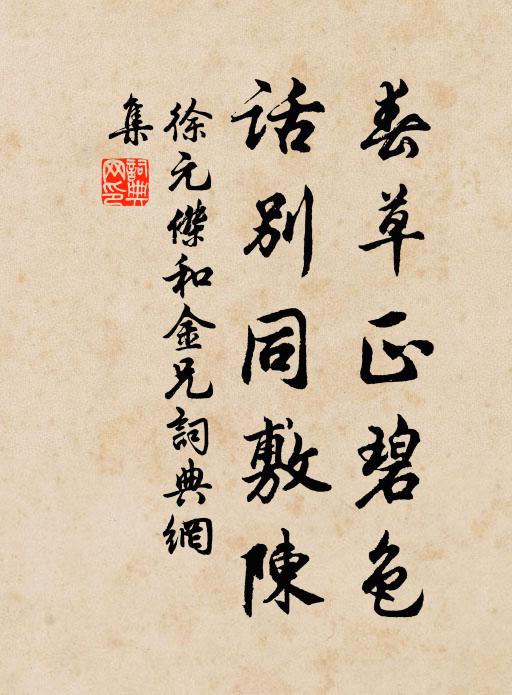 春草正碧色
話別同敷陳
徐元傑和金兄詞典網
集
詞典網印